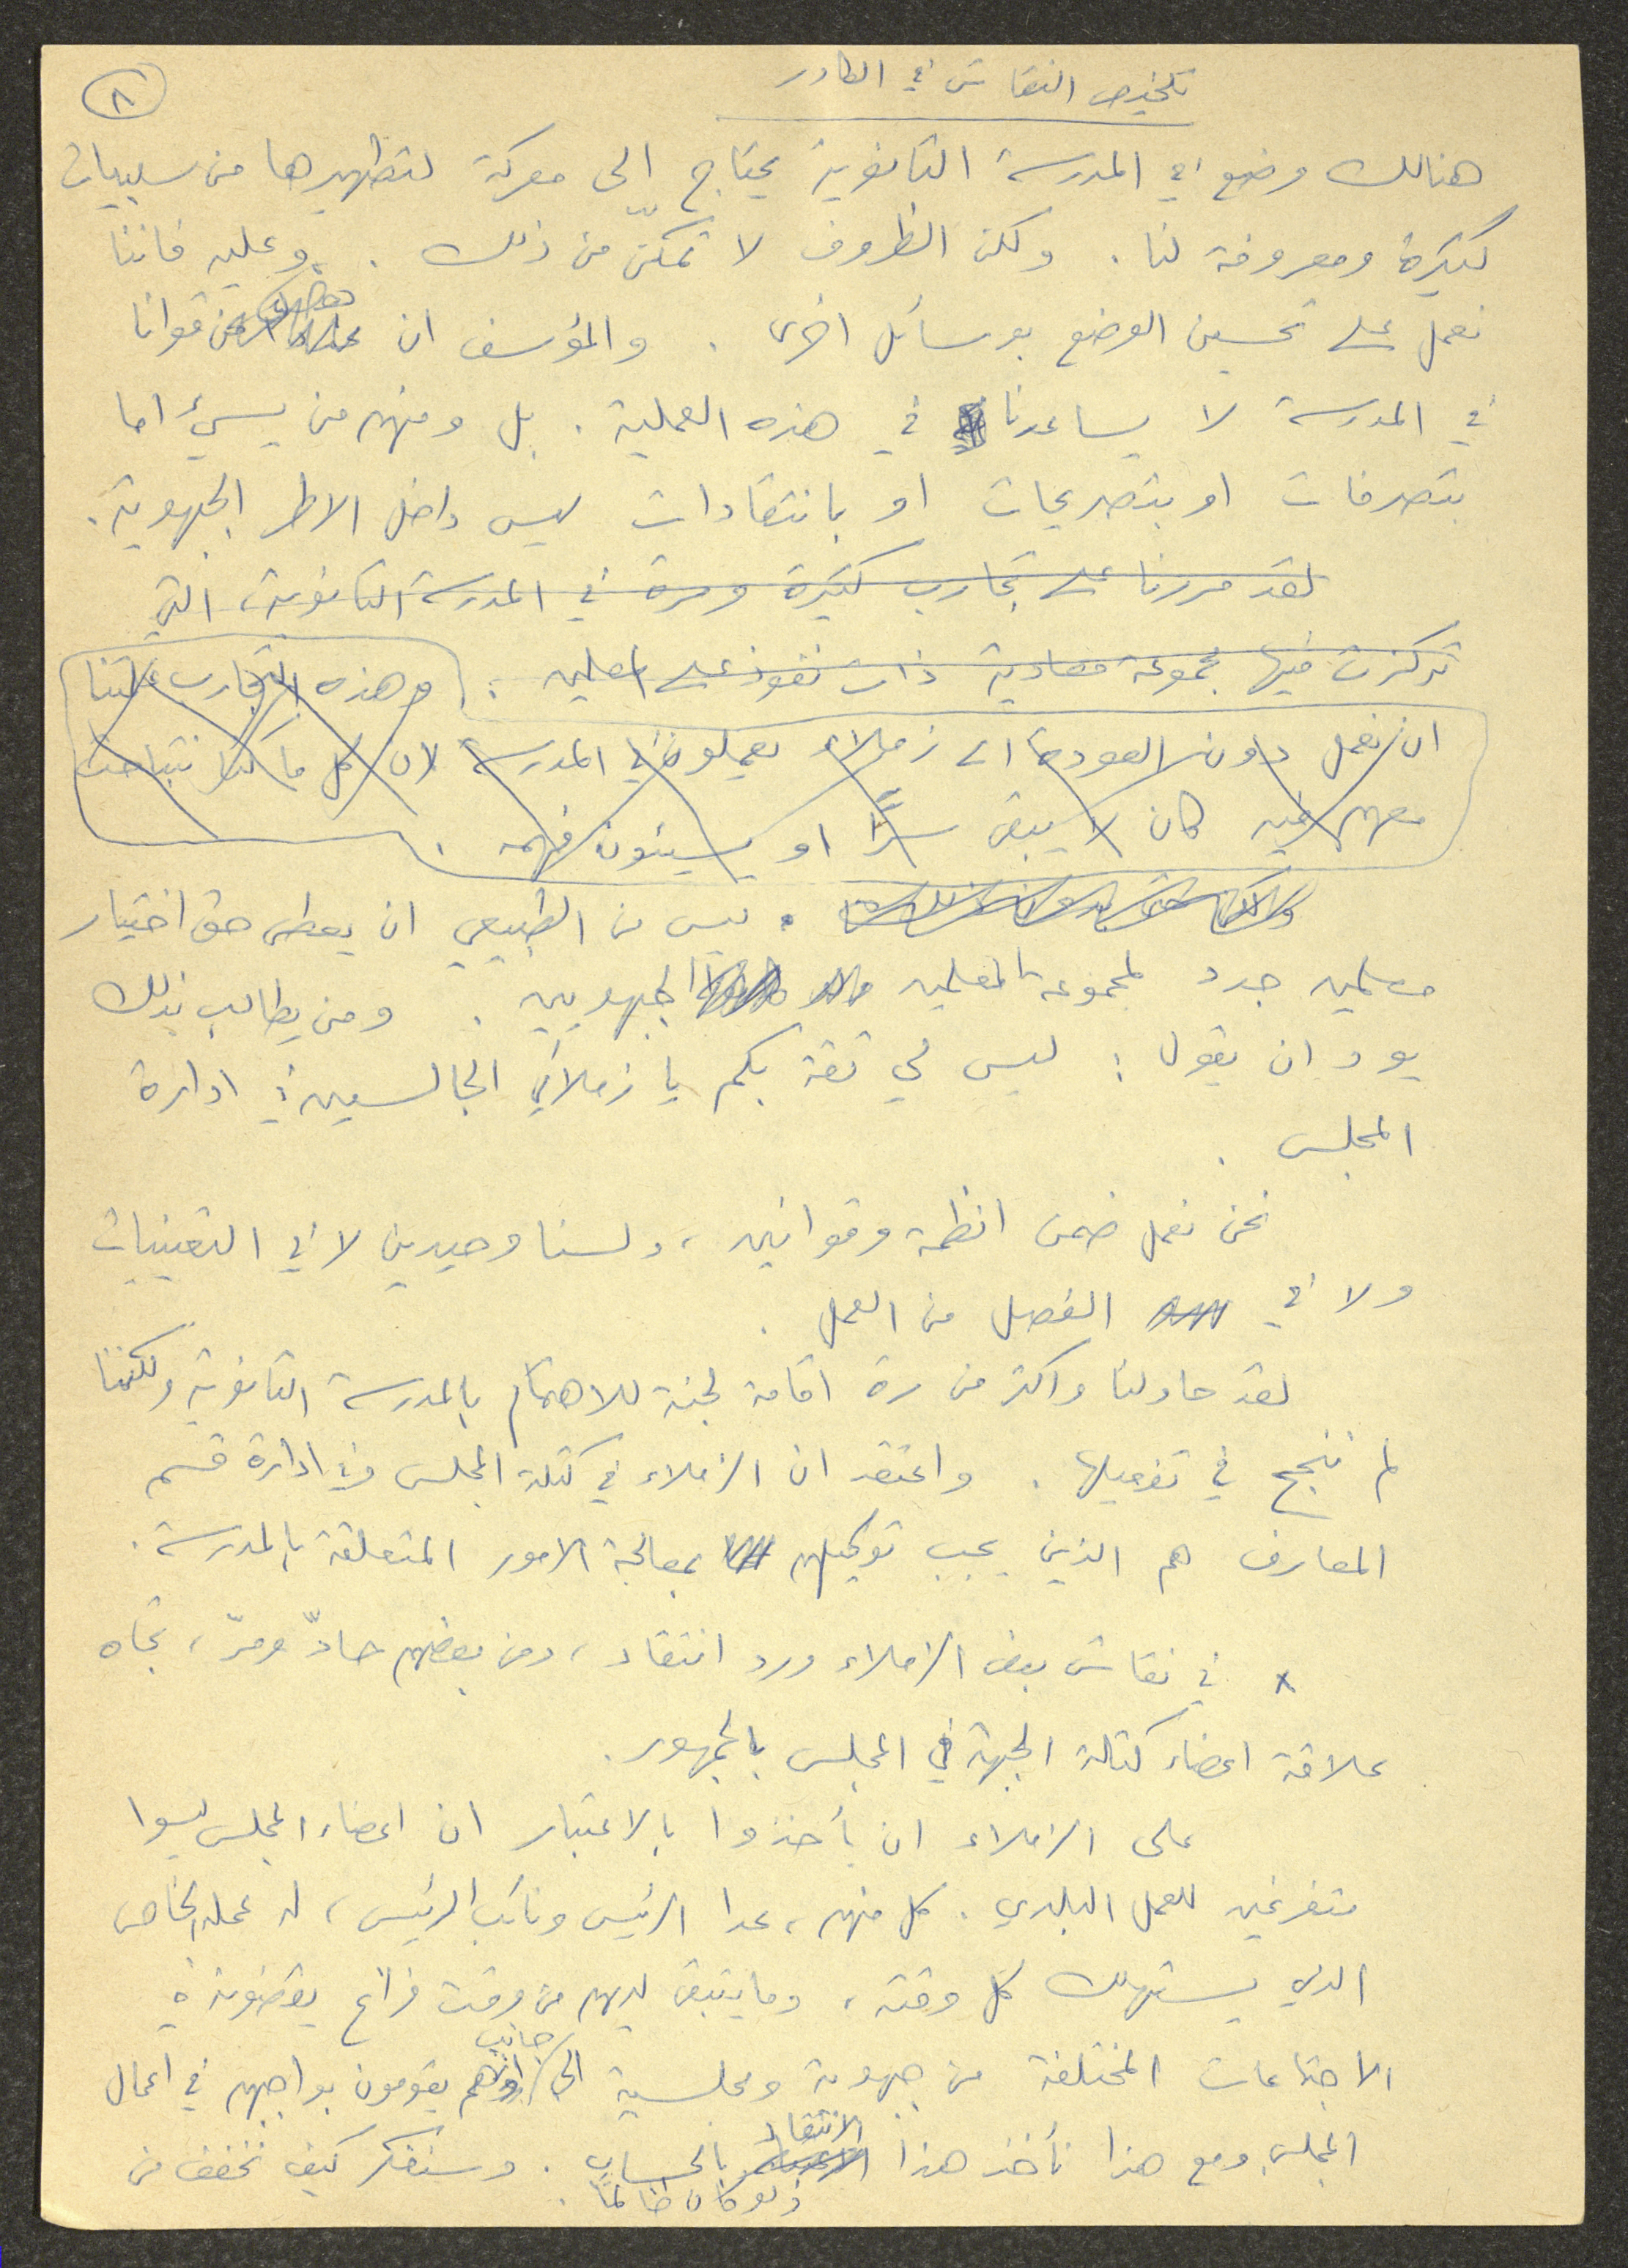 تلخيص النقاش في الكادر
٨
هنالك وضع في المدرسة الثانوية يحتاج الى معركة لتطهيرها من سلبيات
كثيرة ومعروفة لنا . ولكن الظروف لا تمكّن من ذلك . وعليه فاننا
نعمل على تحسين الوضع بوسائل اخرى . والمؤسف ان من قوانا
في المدرسة لا يساعدنا في هذه العملية . بل ومنهم من يسيء اما
بتصرفات او بتصريحات او بانتقادات ليس داخل الاطر الجبهوية .
لقد مررنا على تجارب كثيرة ومرة في المدرسة الثانوية، التي
تركزت فيها مجموعة معادية ذات نفوذ على المعلمين . وهذه التجارب علمتنا
ان نعمل دون العودة الى زملاء يعملون في المدرسة لان كل ما كنا نتباحث
معهم فيه كان لا يبقى سرًا او يسيئون فهمه .
ليس من الطبيعي ان يعطى حق اختيار
معلمين جدد لمجموعة المعلمين الجبهويين . ومن يطالب بذلك
يود ان يقول : ليس لي ثقة بكم يا زملائي الجالسين في ادارة
المجلس .
نحن نعمل ضمن انظمة وقوانين ، ولسنا وحيدين لا في التعيينات
ولا في الفصل من العمل .
لقد حاولنا واكثر من مرة اقامة لجنة للاهتمام بالمدرسة الثانوية ولكننا
لم ننجح في تفعيلها . واعتقد ان الزملاء في كتلة المجلس وفي ادارة قسم
المعارف هم الذين يجب توكيلهم بمعالجة الامور المتعلقة بالمدرسة .
x في نقاش بعض الزملاء ورد انتقاد ، ومن بعضهم حادّ ومرّ ، تجاه
علاقة اعضاء كتلة الجبهة في المجلس بالجمهور .
على الزملاء ان يأخذوا بالاعتبار ان اعضاء المجلس ليسوا
متفرغين للعمل البلدي . كل منهم ، عدا الرئيس ونائب الرئيس ، له عمله الخاص
الذي يستهلك كل وقته ، وما يتبقى لديهم من وقت فراغ يقضونه في
الاجتماعات المختلفة من جبهوية ومجلسية الى جانب انهم يقومون بواجبهم في اعمال
المجلس ومع هذا نأخذ هذا الانتقاد بالحساب . وسنفكر كيف نخفف من
ولو كان ظالمًا .